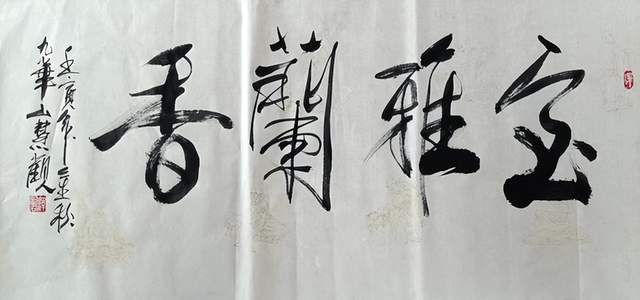 室雅蘭香
壬寅年秋
九華山慧觀